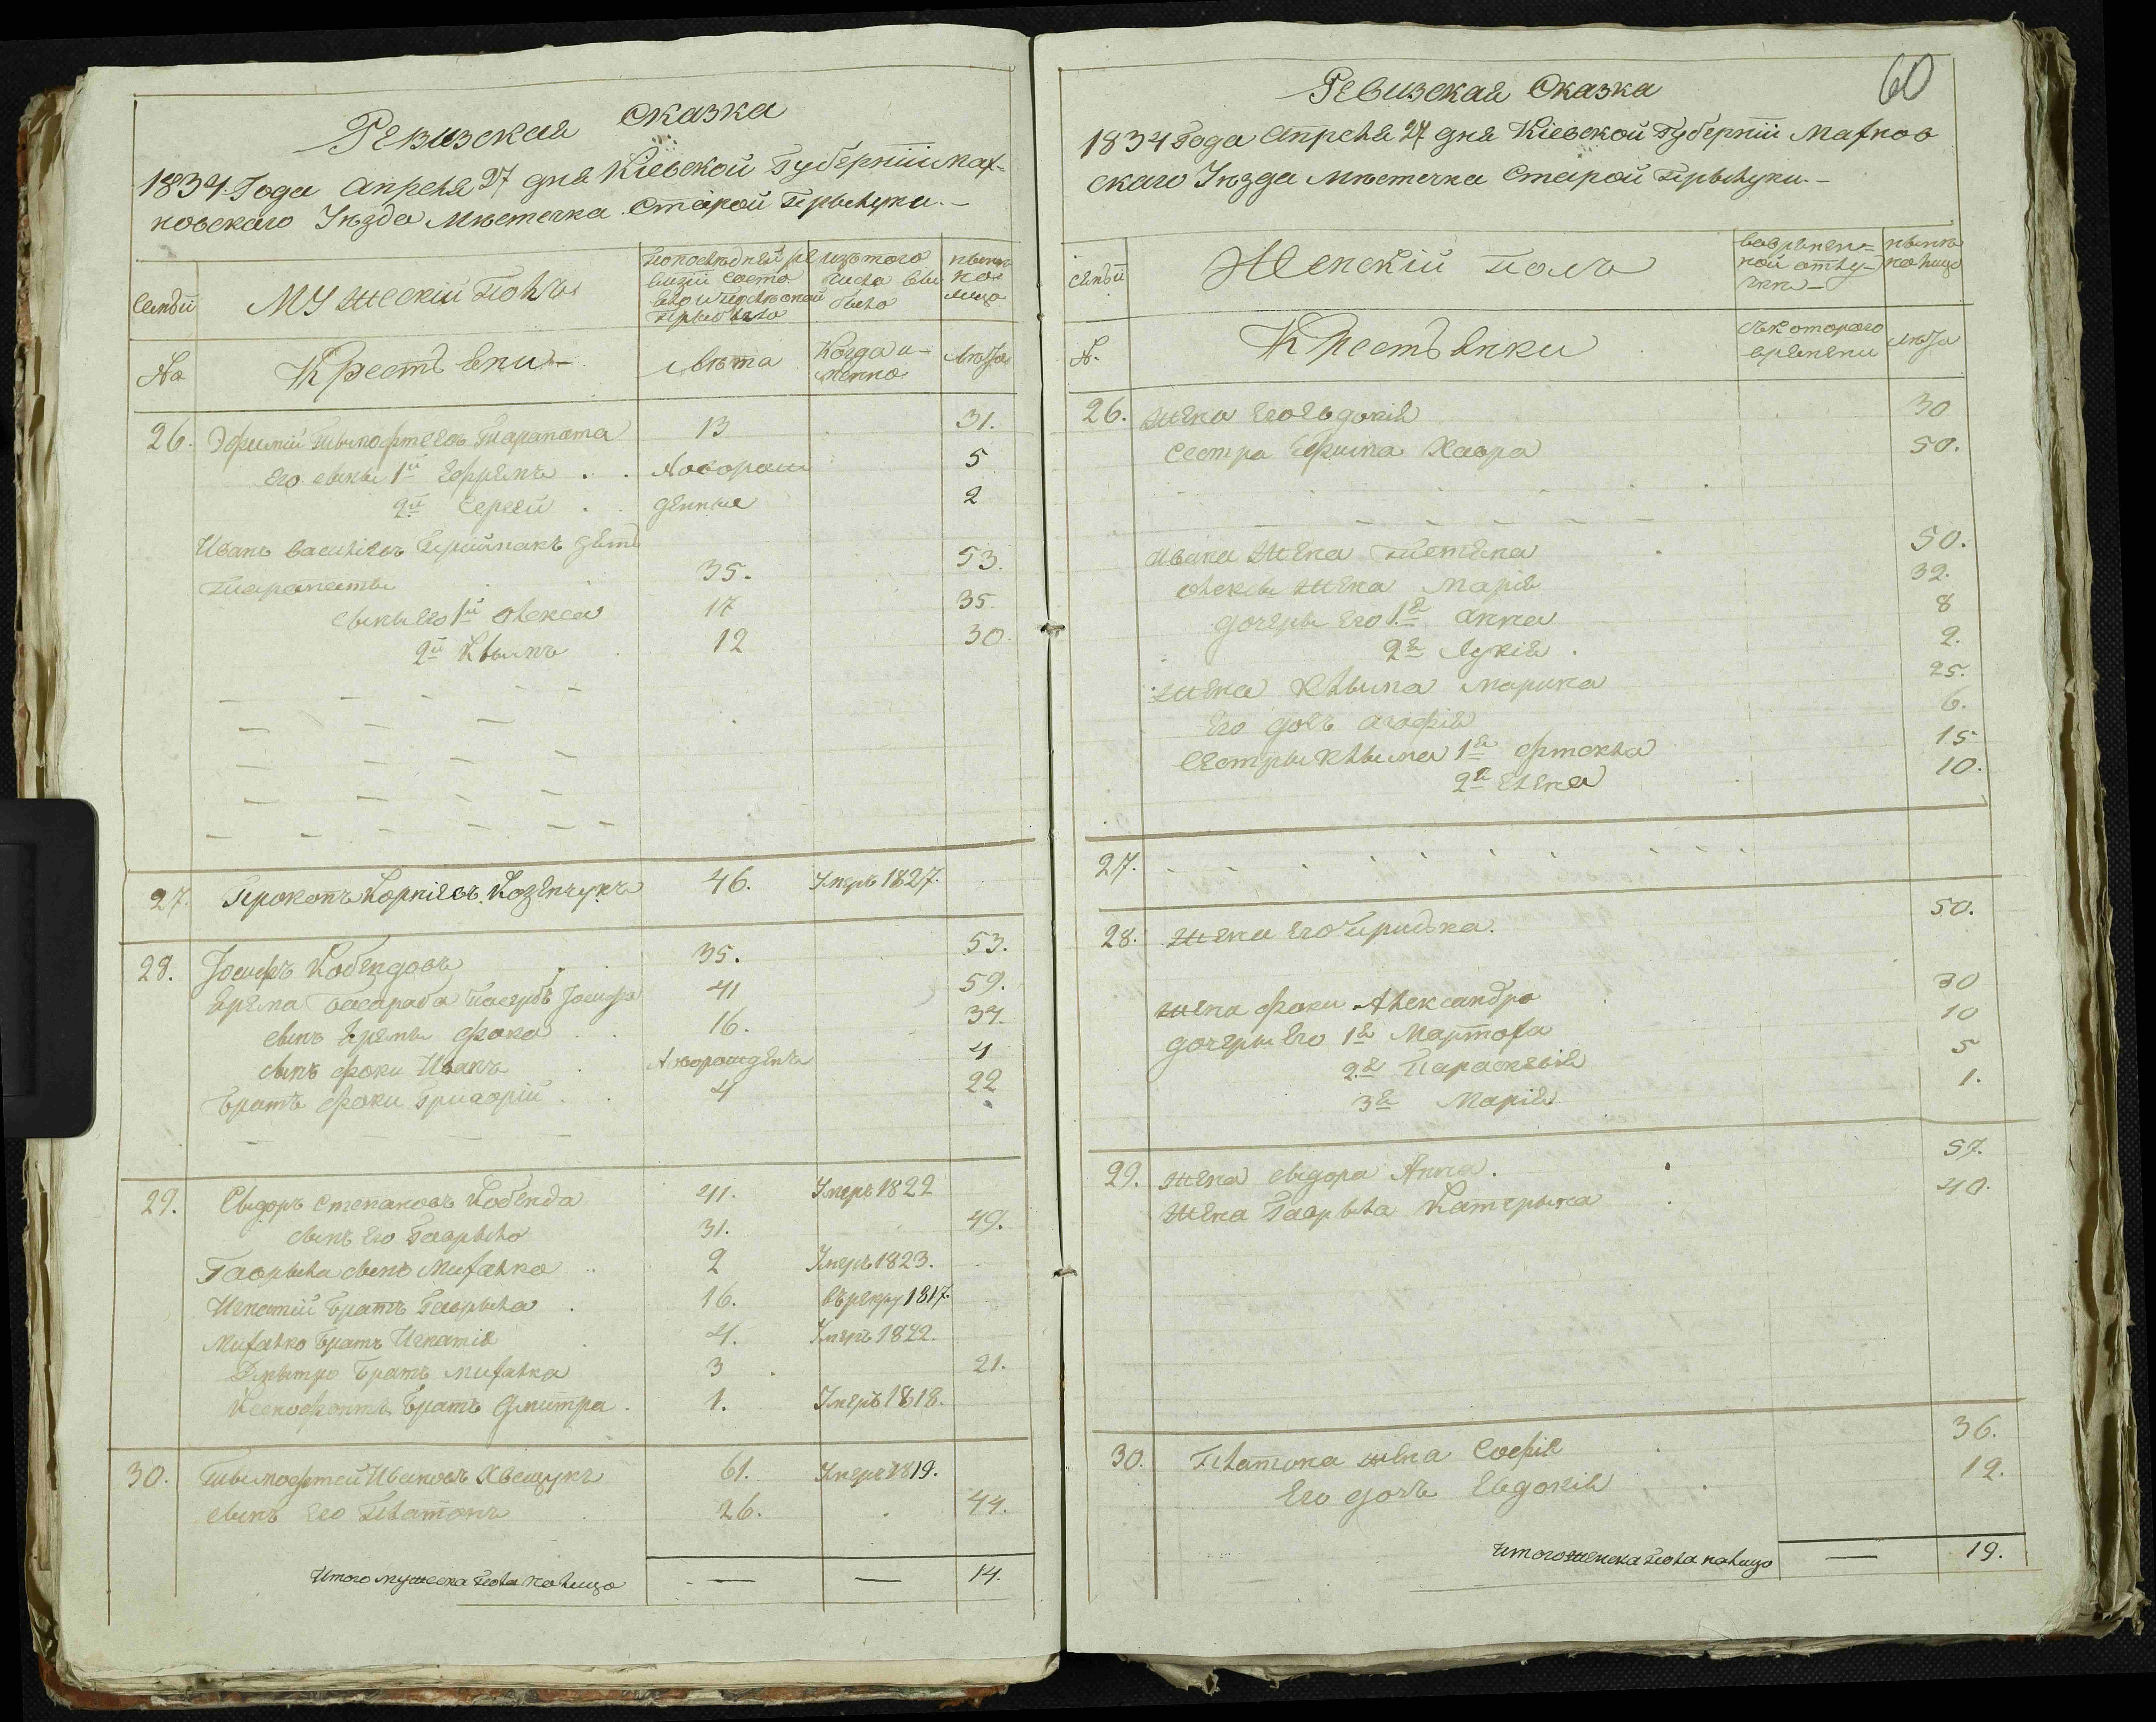 Ревизская Сказка
1834. Года Апреля 27 дня Кіевской Губерніи Мах-
новскаго Уезда Местечка Старой Прылуки.-
Семьи
Мужескій Полъ
По последней ре
визіи состо
яло и после оной
прыбыло
изъ того
числа вы
было
ныне на
лицо
№
Крестьяни-
лета
Когда и-
менно
лета
26. Эфимій Тымофтеевъ Тарапата 13 31.
Его сыны 1й Ефремъ . . Новорож 5
2й Сергей . . денные 2
Иванъ Васильевъ Прыймакъ
Тарапаты 35. 53.
сыны Его 1й Олекса 17 35.
2й Клымъ 12 30.
27. Прокопъ Корніевъ Козенчукъ 46. Умеръ 1827.
28. Іосифъ Кобендовъ 35. 53.
Ярема Басараба Іосифа 41 59.
сынъ Яремы Фока 16. 34.
сынъ Фоки Иванъ Новорожденъ 4
Братъ Фоки Григорій 4 22
29. Сыдоръ Степановъ Кобенда 41. Умеръ 1822
сынъ Его Гаврыло 31. 49.
Гаврыла сынъ Михалко 2 Умеръ 1823.
Игнатій Братъ Гаврыла 16. въ рекру 1817.
Михалко Братъ Игнатія 4. Умеръ 1822.
Дмытро Братъ Михалка 3 21.
Ксенофонтъ Братъ Дмитра 1. Умеръ 1818.
30. Тымофтей Ивановъ Хвещукъ 61. Умеръ 1819.
сынъ Его Платонъ 26. 44.
Итого мужеска пола налицо — — 14.
60
Ревизская Сказка
1834 Года Апреля 27 дня Кіевской Губерніи Махнов
скаго Уезда Местечка Старой Прылуки.-
Семьи
Женскій полъ
Во времен=
ной отлу-
чки-
ныне
налицо
№.
Крестьянки
Съ котораго
времени
лета
26. Жена Его Евдокія 30
Сестра Ефима Хавра 50.
Ивана Жена 50.
Олексы Жена Марія 32.
дочеры Его 1я Анна 8
2я Лукія . 2.
Жена Клыма Марина 25.
Его дочь Агафія 6.
Сестры Клыма 1я 15
2я Елена 10.
27.
28. Жена Его 50.
Жена Фоки Александра 30
дочеры Его 1я Мартоха 10
2я Параскевія 5
3я Марія 1.
29. Жена Сыдора Анна. 57.
Жена Гаврыла Катерына 40.
30. Платона жена Софія 36.
Его дочь Евдокія 12.
Итого женска пола налицо — 19.